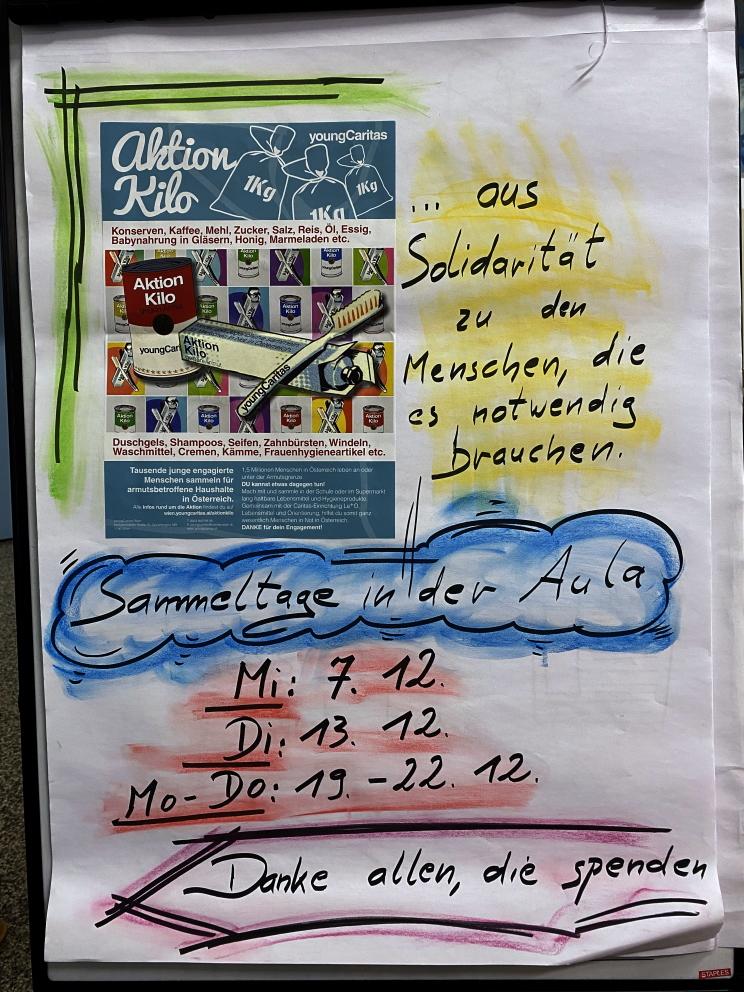 Aktion
Kilo
youngCaritas
1Kg
1Kg
1Kg
Konserven, Kaffee, Mehl, Zucker, Salz, Reis, Öl, Essig,
Babynahrung in Gläsern, Honig, Marmeladen etc.
Aktion
Kilo
youngCari
Aktion
Kilo
youngCaritas
Duschgels, Shampoos, Seifen, Zahnbürsten, Windeln,
Waschmittel, Cremen, Kämme, Frauenhygieneartikel etc.
Tausende junge engagierte
Menschen sammeln für
armutsbetroffene Haushalte
in Österreich.
Alle Infos rund um die Aktion findest du auf
wien.youngcaritas.at/aktionkilo
1,5 Millionen Menschen in Österreich leben an oder
unter der Armutsgrenze.
DU kannst etwas dagegen tun!
Mach mit und sammle in der Schule oder im Supermarkt
lang haltbare Lebensmittel und Hygieneprodukte.
Gemeinsam mit der Caritas-Einrichtung Le+O,
Lebensmittel und Orientierung, hilfst du somit ganz
wesentlich Menschen in Not in Österreich.
DANKE für dein Engagement!
... aus
Solidarität
zu den
Menschen, die
es notwendig
brauchen.
Sammeltage in der Aula
Mi: 7. 12.
Di: 13. 12.
Mo-Do: 19.-22. 12.
Danke allen, die spenden
STAPLES